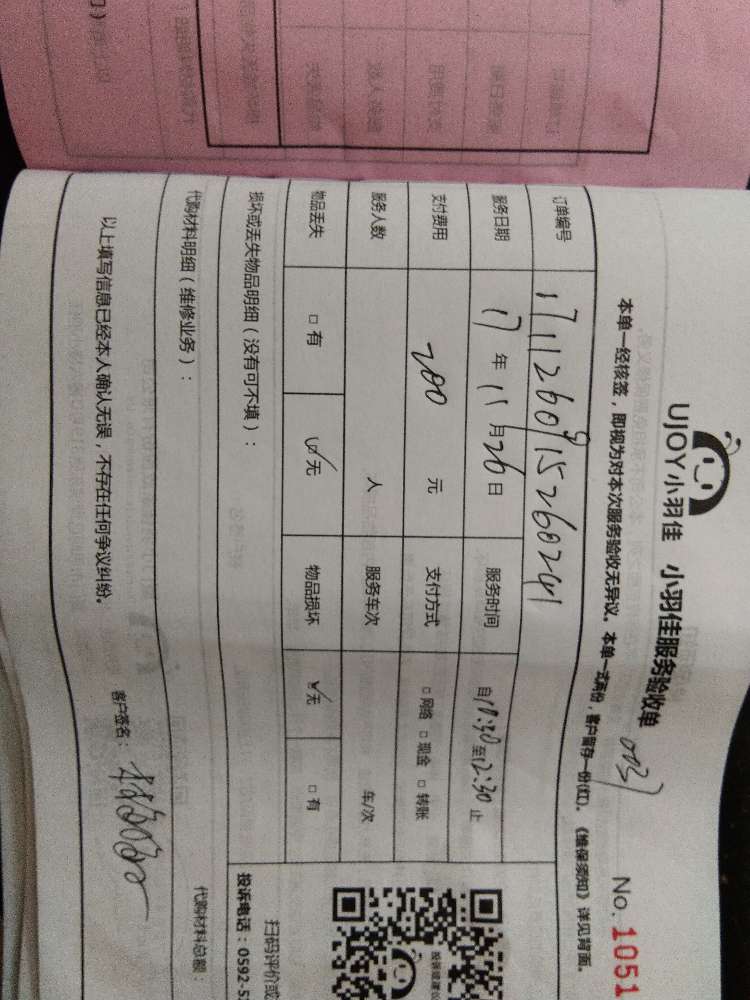 UJOY小羽佳 小羽佳服务验收单
No. 1051
本单一经核签，即视为对本次服务验收无异议。本单一式两份，客户留存一份(红)。《维保须知》详见背面。
订单编号 1711260915260241
服务日期 17年11月26日 服务时间 自10:30至12:30止
支付费用 200元 支付方式 □网络 □现金 □转账
服务人数 人 服务车次 车/次
物品丢失 □有 ☑无 物品损坏 ☑无 □有
损坏或丢失物品明细（没有可不填）：
扫码评价或
投诉电话：0592-5
代购材料明细（维修业务）：
代购材料总额：
以上填写信息已经本人确认无误，不存在任何争议纠纷。 客户签名：